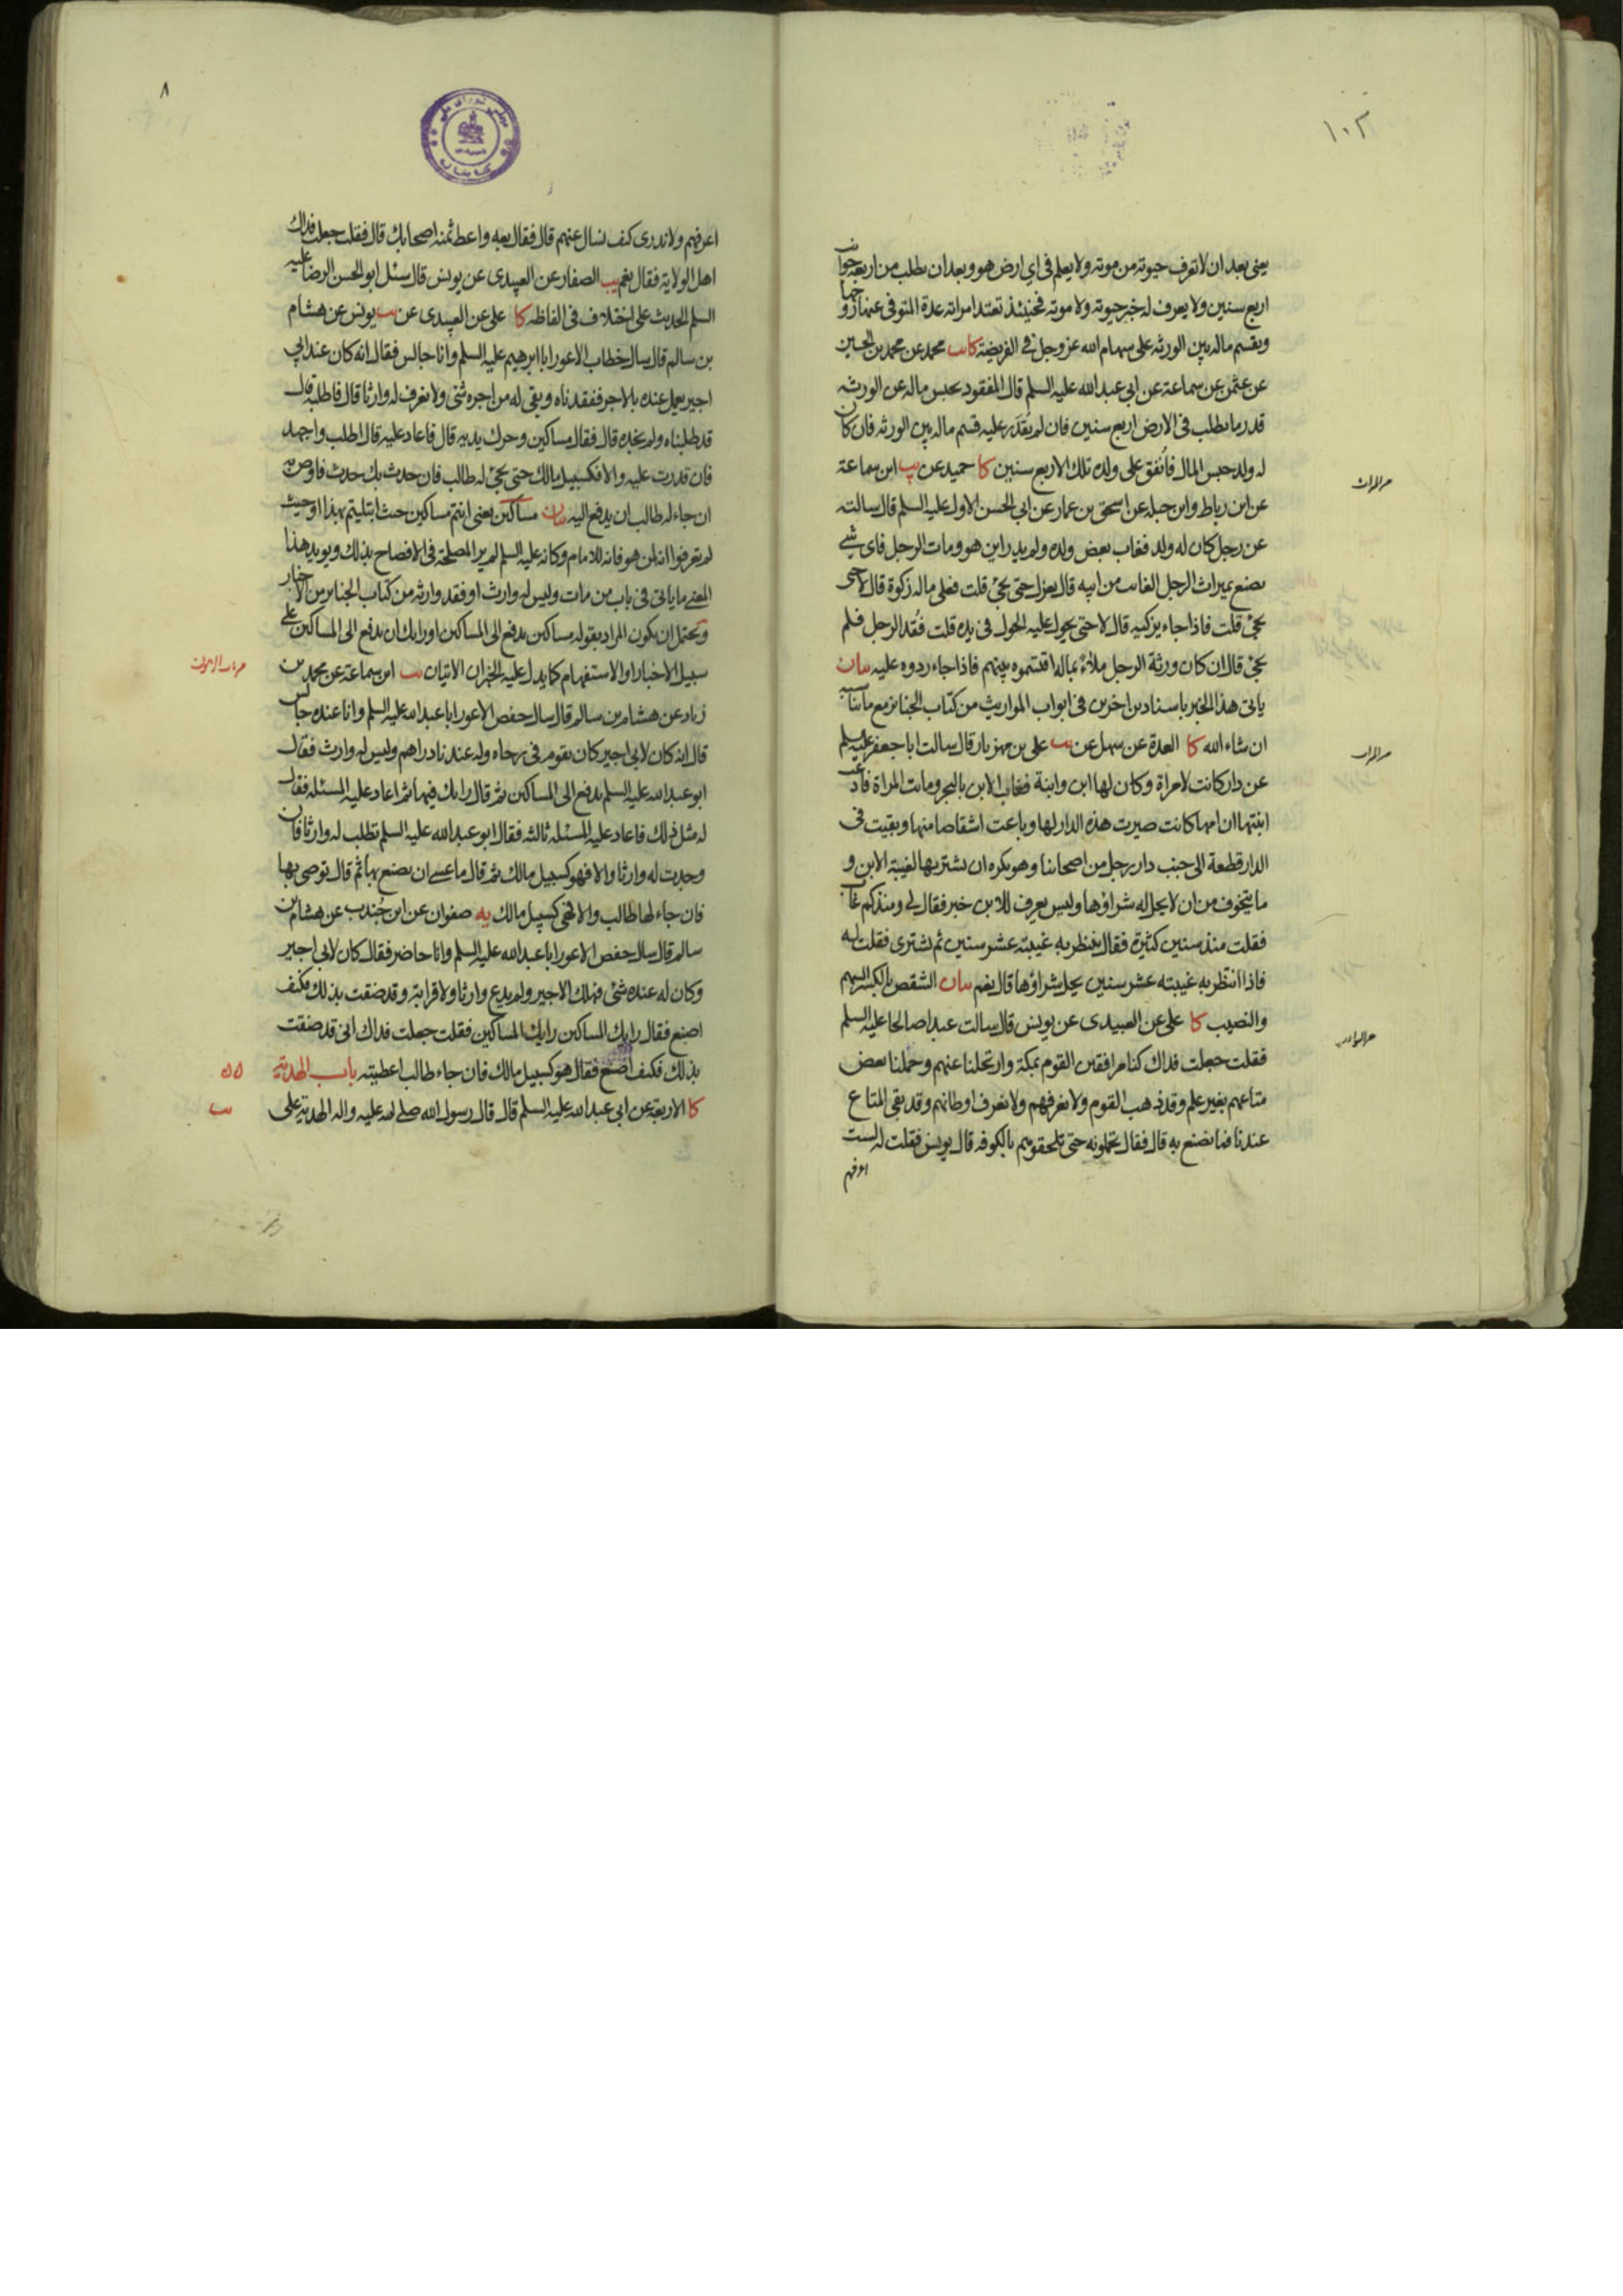 ١٠٢
يعنى بعد ان لا تعرف حيوته من موته ولا يعلم فى اي ارض هو وبعد ان يطلب من اربعة جوانب
اربع سنين ولا يعرف له خبر حيوته ولا موته فحينئذ تعتد امراته عدة المتوفى عنها زوجها
ويقسم ماله بين الورثه على سهام الله عز وجل فى الفريضة كا يب محمد عن محمد بن الحسين
عن عثمن عن سماعة عن ابى عبد الله عليه السلم قال المفقود يحبس ماله عن الورثه
قدر ما يطلب فى الارض اربع سنين فان لم يقدر عليه قسم ماله بين الورثه فان كان
له ولد حبس المال فانفق على ولده تلك الاربع سنين كا حميد عن يب ابن سماعة
عن ابن رباط وابن جبله عن اسحق بن عمار عن ابى الحسن الاول عليه السلم قال سالته
عن رجل كان له ولد فغاب بعض ولده ولم يدر اين هو ومات الرجل فاى شيء
يصنع بميراث الرجل الغائب من ابيه قال يعزل حتى يجئ قلت فعلى ماله زكوة قال لا حتى
يجئ قلت فاذا جاء يزكيه قال لا حتى يحول عليه الحول فى يده قلت فقد الرجل فلم
يجئ قال ان كان ورثة الرجل ملاء بماله اقتسموه بينهم فاذا جاء ردوه عليه بيان
ياتى هذا الخبر باسنادين اخرين فى ابواب المواريث من كتاب الجنائز مع ما يناسبه
ان شاء الله كا العدة عن سهل عن يب على بن مهزيار قال سالت ابا جعفر عليه السلم
عن دار كانت لامراة وكان لها ابن وابنة فغاب الابن بالبحر وماتت المراة فادعت
ابنتها ان امها كانت صيرت هذه الدار لها وباعت اشقاصا منها وبقيت فى
الدار قطعة الى جنب دار رجل من اصحابنا وهو يكره ان يشتريها لغيبة الابن و
ما يتخوف من ان لا يحل له شراؤها وليس يعرف للابن خبر فقال لى ومنذ كم غاب
فقلت منذ سنين كثيرة فقال ينتظر به غيبته عشر سنين ثم يشترى فقلت له
فاذا انتظر به غيبته عشر سنين يحل شراؤها قال نعم بيان الشقص بالكسر السهم
والنصيب كا على عن العبيدى عن يونس قال سالت عبدا صالحا عليه السلم
فقلت جعلت فداك كنا مرافقين القوم بمكة وارتحلنا عنهم وحملنا بعض
متاعهم بغير علم وقد ذهب القوم ولا نعرفهم ولا نعرف اوطانهم وقد بقى المتاع
عندنا فما نصنع به قال فقال تحملونه حتى تلحقوهم بالكوفه قال يونس فقلت له لست
اعرفهم
٨
اعرفهم ولا ندرى كيف نسال عنهم قال فقال بعه واعط ثمنه اصحابك قال فقلت جعلت فداك
اهل الولاية فقال نعم يب الصفار عن العبيدى عن يونس قال سئل ابو الحسن الرضا عليه
السلم الحديث على اختلاف فى الفاظه كا على عن العبيدى عن يب يونس عن هشام
بن سالم قال سال خطاب الاعور ابا ابرهيم عليه السلم وانا جالس فقال انه كان عند ابى
اجير يعمل عنده بالاجر ففقدناه وبقى له من اجره شئ ولا نعرف له وارثا قال فاطلبه قال
قد طلبناه ولم نجده قال فقال مساكين وحرك يديه قال فاعاد عليه قال اطلب واجهد
فان قدرت عليه والا فكسبيل مالك حتى يجئ له طالب فان حدث بك حدث فاوص به
ان جاء له طالب ان يدفع اليه بيان مساكين يعنى انتم مساكين حيث ابتليتم بهذا او حيث
لم تعرفوا انه لمن هو فانه للامام وكانه عليه السلم لم ير المصلحة فى الافصاح بذلك ويويد هذا
المعنى ما ياتى فى باب من مات وليس له وارث او فقد وارثه من كتاب الجنائز من الاخبار
ويحتمل ان يكون المراد بقوله مساكين يدفع الى المساكين او رايك ان يدفع الى المساكين على
سبيل الاخبار او الاستفهام كما يدل عليه الخبران الاتيان يب ابن سماعة عن محمد بن
زياد عن هشام بن سالم قال سال حفص الاعور ابا عبد الله عليه السلم وانا عنده جالس
قال انه كان لابى اجير كان يقوم فى رحاه وله عندنا دراهم وليس له وارث فقال
ابو عبد الله عليه السلم يدفع الى المساكين ثم قال رايك فيها ثم اعاد عليه المسئله فقال
له مثل ذلك فاعاد عليه المسئلة ثالثه فقال ابو عبد الله عليه السلم تطلب له وارثا فان
وجدت له وارثا والا فهو كسبيل مالك ثم قال ما عسى ان يصنع بها ثم قال توصى بها
فان جاء لها طالب والا فهى كسبيل مالك يه صفوان عن ابن جندب عن هشام بن
سالم قال سال حفص الاعور ابا عبد الله عليه السلم وانا حاضر فقال كان لابى اجير
وكان له عنده شئ فهلك الاجير ولم يدع وارثا ولا قرابة وقد ضقت بذلك فكيف
اصنع فقال رايك المساكين رايك المساكين فقلت جعلت فداك انى قد ضقت
بذلك فكيف اصنع فقال هو كسبيل مالك فان جاء طالب اعطيته باب الهدية
كا الاربعة عن ابى عبد الله عليه السلم قال قال رسول الله صلى الله عليه واله الهدية على